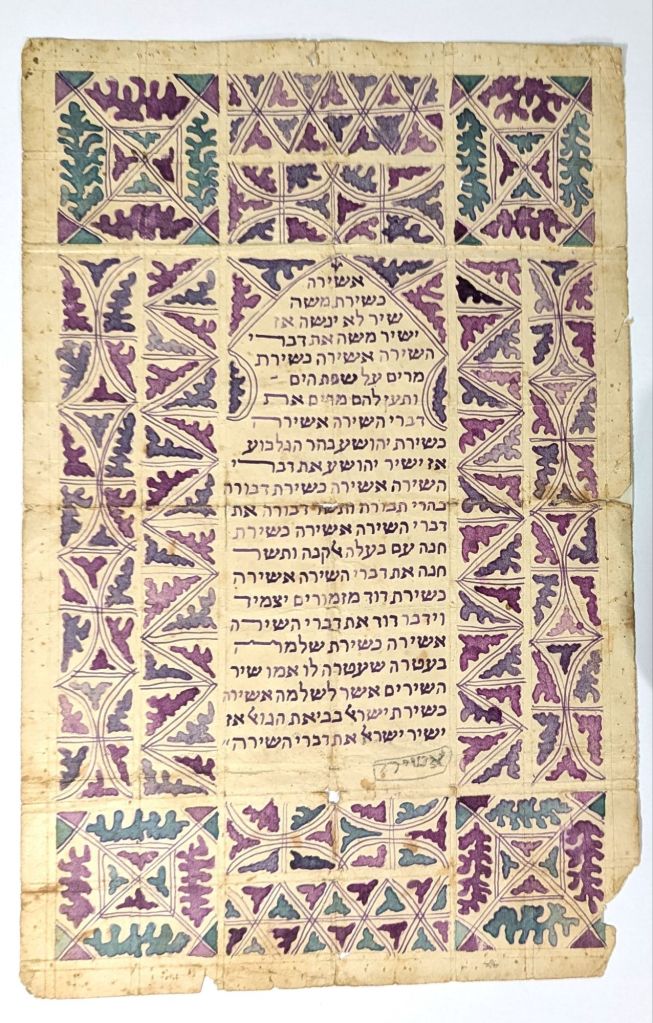 אשירה
כשירת משה
שיר לא ינשה אז
ישיר משה את דברי
השירה אשירה כשירת
מרים על שפת הים -
ותען להם מרים את
דברי השירה אשירה
כשירת יהושע בהר הגלבוע
אז ישיר יהושע את דברי
השירה אשירה כשירת דבורה
בהרי תבורה ותשר דבורה את
דברי השירה אשירה כשירת
חנה עם בעלה אלקנה ותשר
חנה את דברי השירה אשירה
כשירת דוד מזמורים יצמיד
וידבר דוד את דברי השירה
אשירה כשירת שלמה
בעטרה שעטרה לו אמו שיר
השירים אשר לשלמה אשירה
כשירת ישראל בביאת הגואל אז
ישיר ישראל את דברי השירה״
אשירה